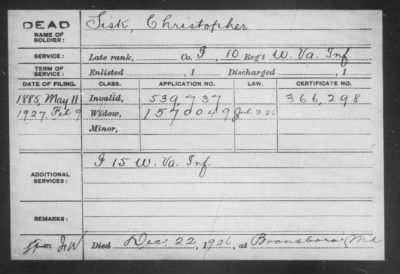 DEAD
NAME OF SOLDIER: Sisk, Christopher
SERVICE: Late rank, Co. I, 10 Reg't W. Va. Inf
TERM OF SERVICE: Enlisted , 1 Discharged , 1
DATE OF FILING. CLASS. APPLICATION NO. LAW. CERTIFICATE NO.
1885, May 11 Invalid, 539,737 366,298
1927, Feb 9 Widow, 1570049
Minor,
ADDITIONAL SERVICES: I 15 W. Va. Inf
REMARKS:
Died Dec. 22, 1926, at Boonsboro Md